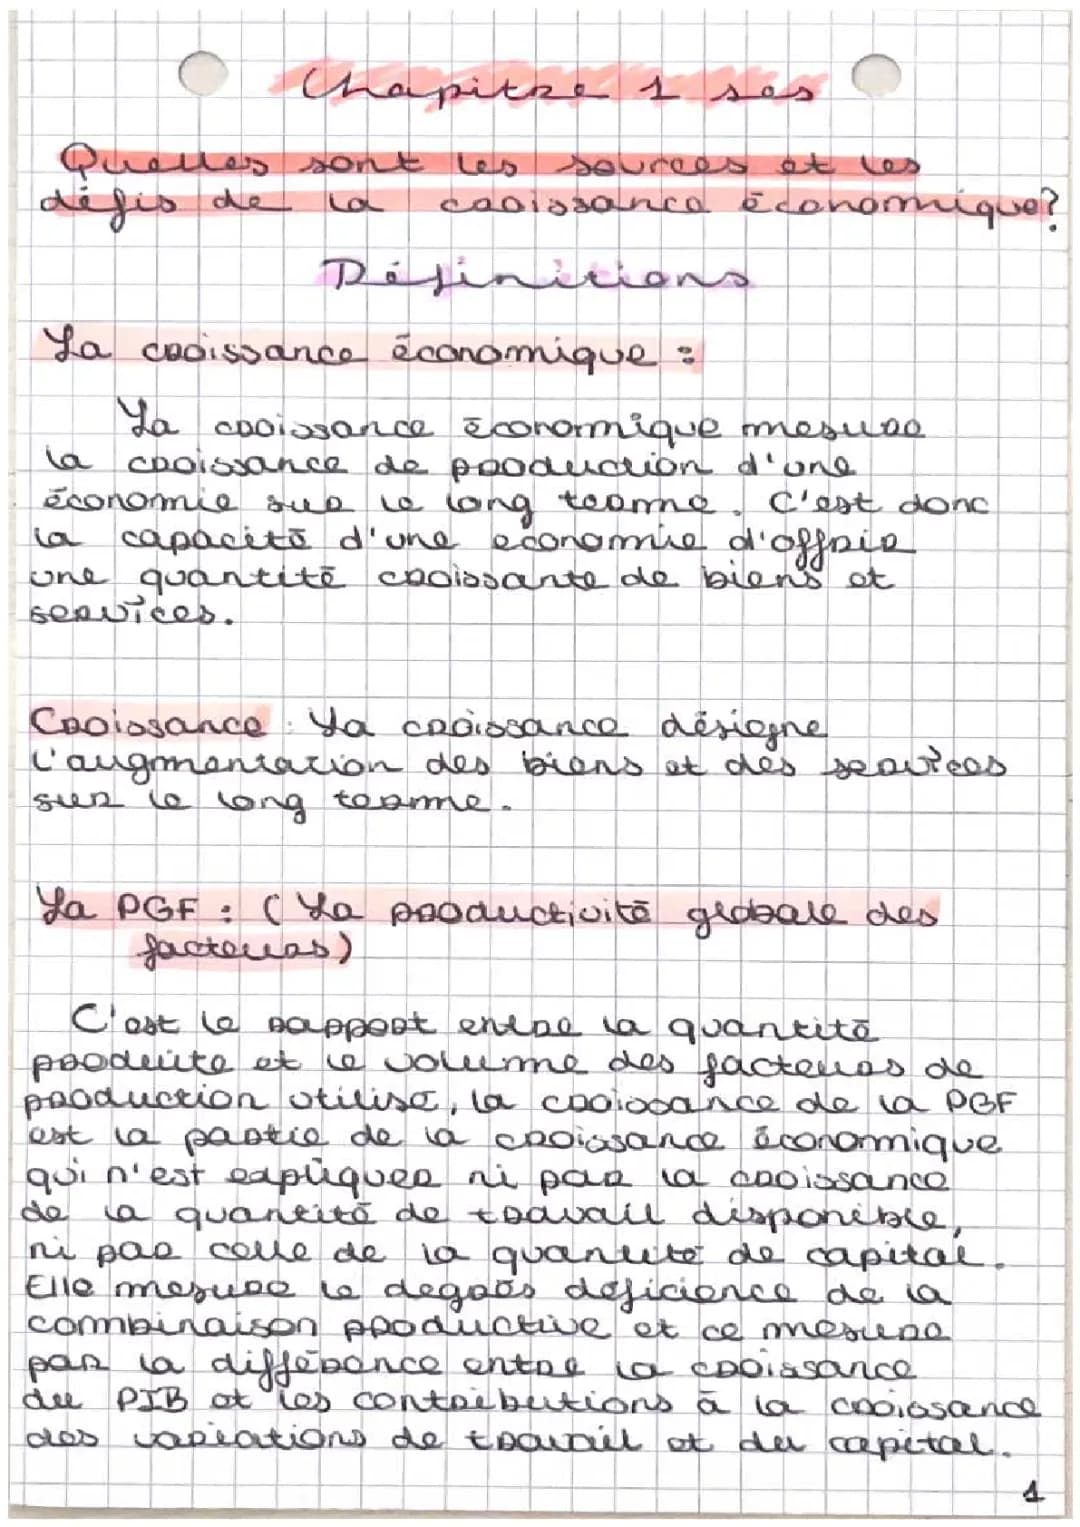 Chapitre 1 ses
Quelles sont les sources et les
défis de la croissance économique?
Définitions
La croissance économique :
La croissance économique mesure
la croissance de production d'une
économie sur le long terme. C'est donc
la capacité d'une economie d'offrir
une quantité croissante de biens et
services.
Croissance : La croissance désigne
l'augmentation des biens et des services
sur le long terme.
La PGF : ( La productivité globale des
facteurs)
C'est le rapport entre la quantité
produite et le volume des facteurs de
production utilisé, la croissance de la PGF
est la partie de la croissance économique
qui n'est expliquer ni par la croissance
de la quantité de travail disponible,
ni par celle de la quantité de capital.
Elle mesure le degrés déficience de la
combinaison productive et ce mesure
par la différence entre la croissance
du PIB et les contributions à la croissance
des variations de travail et du capital.
1